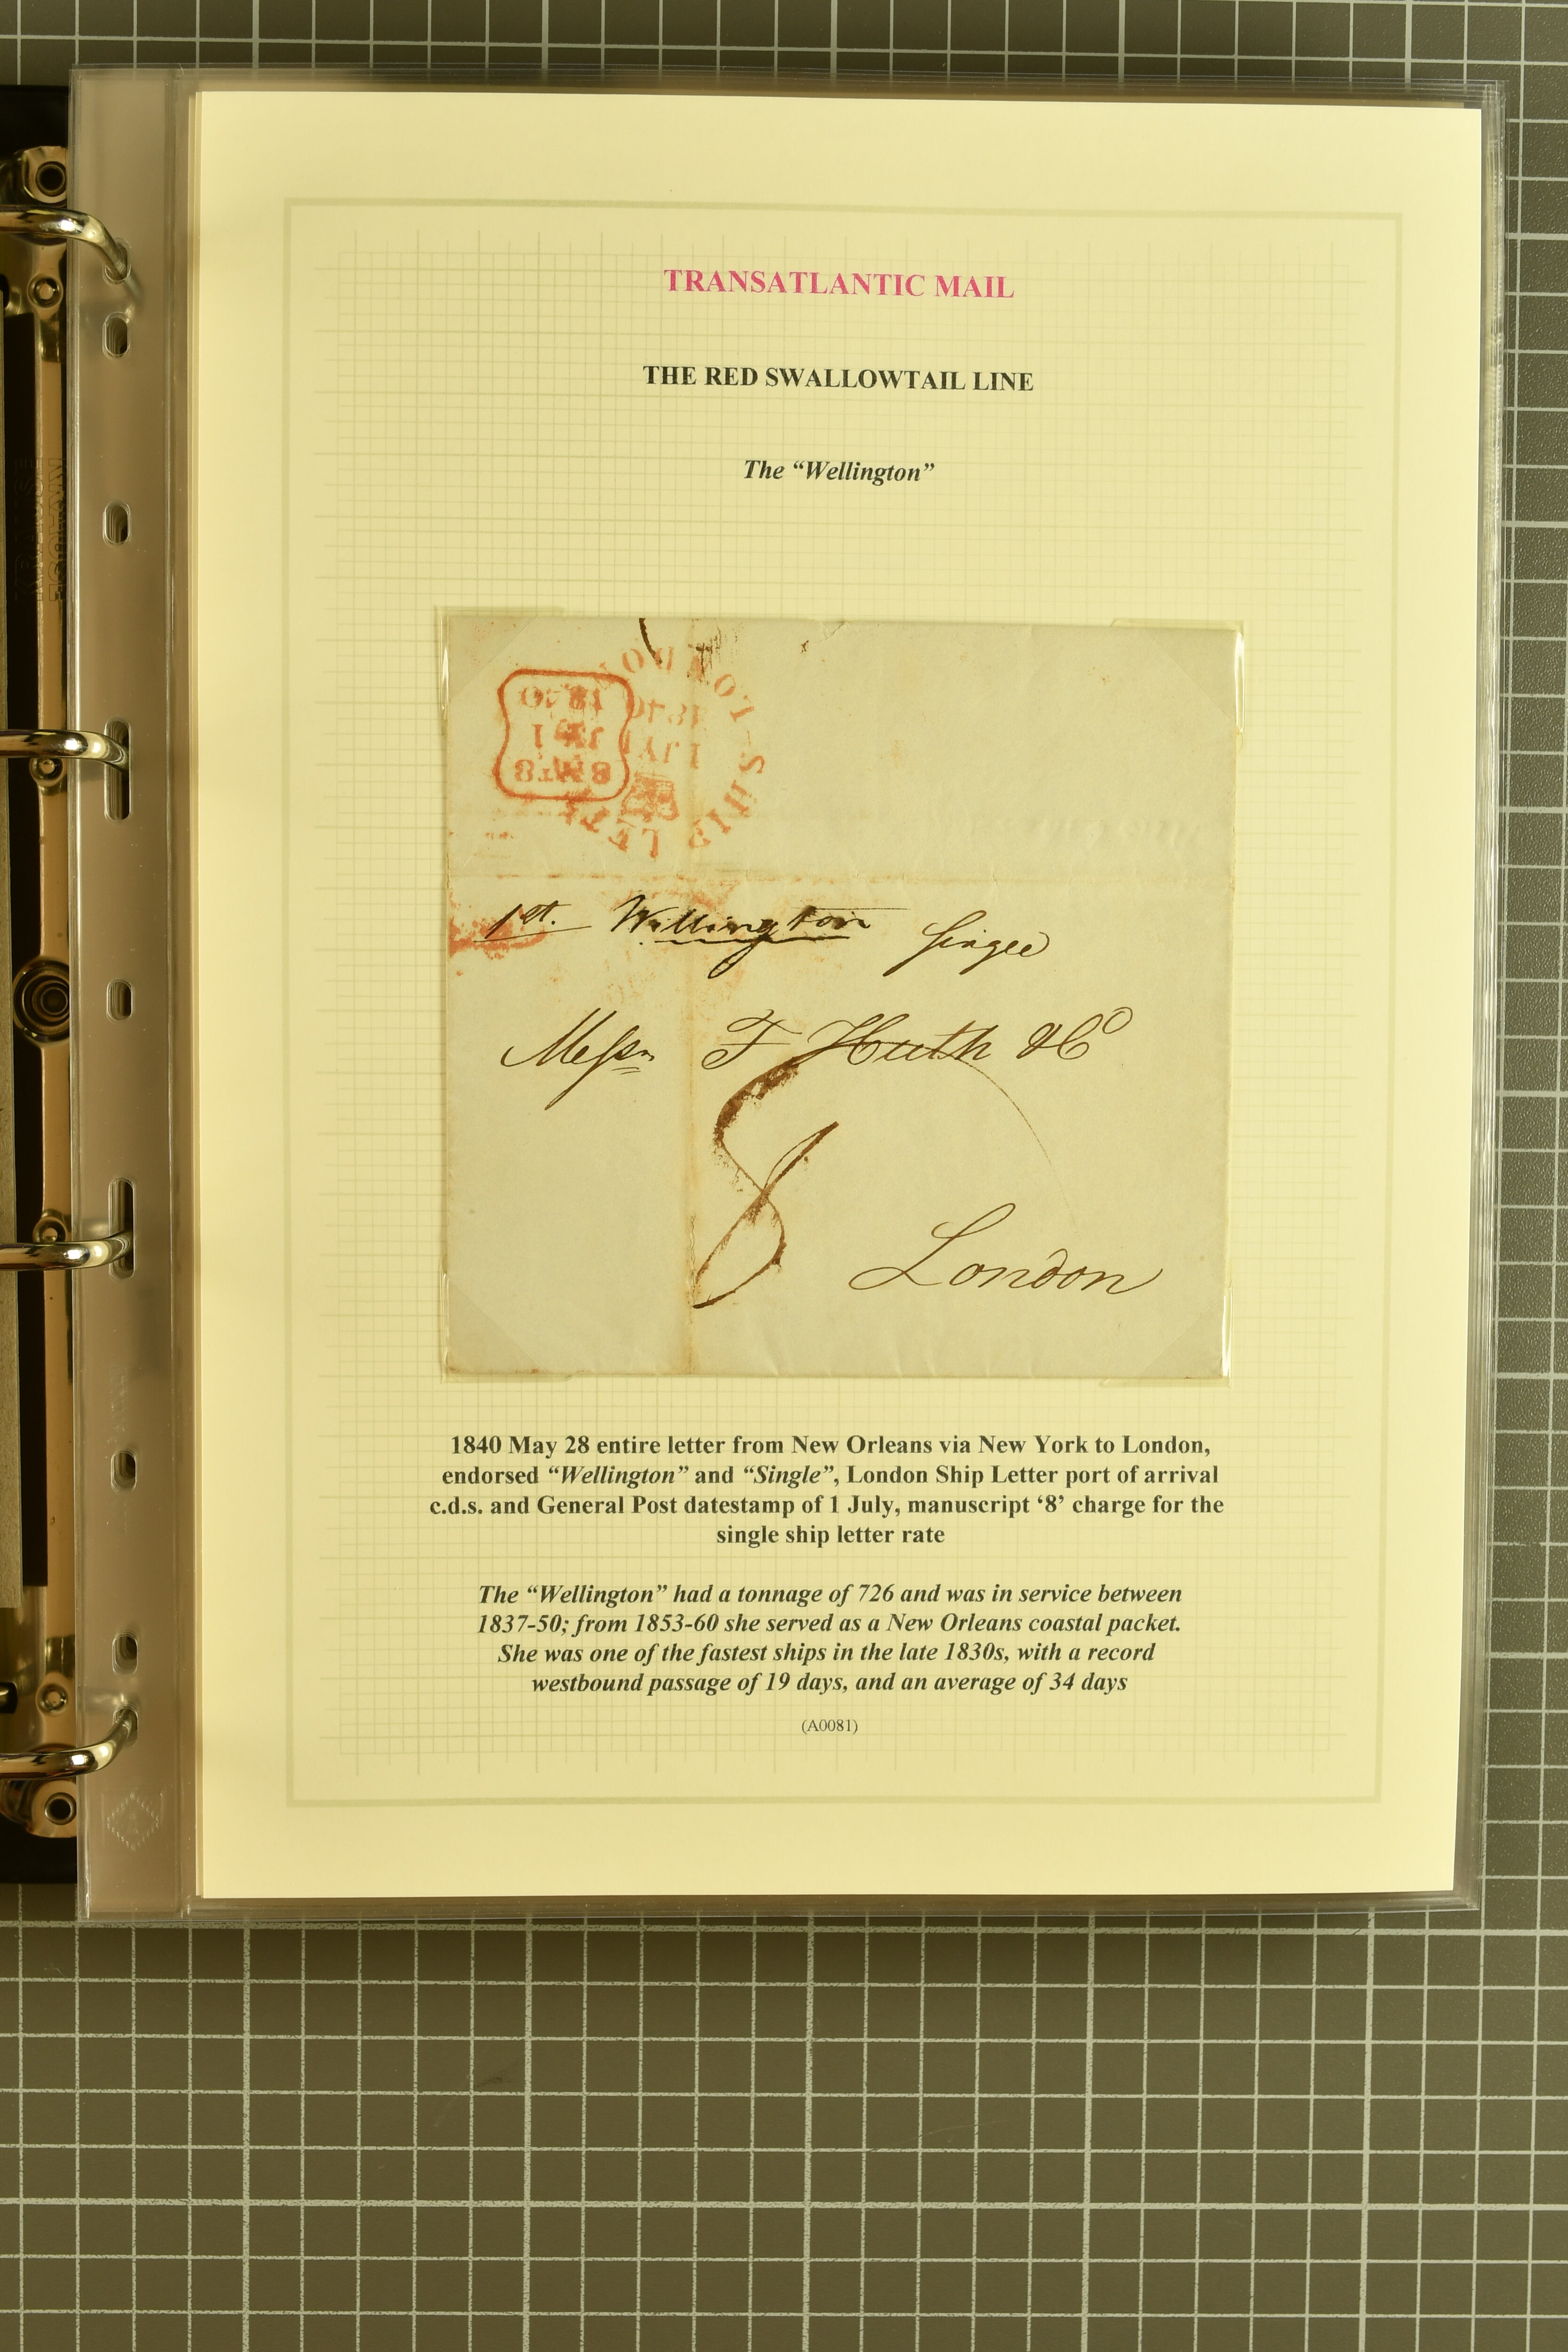 TRANSATLANTIC MAIL
THE RED SWALLOWTAIL LINE
The “Wellington”
LONDON SHIP LETTER
1 JY 1
1840
8 NT 8
JY 1
1840
1st. Wellington Single
Messrs F Huth & Co
8
London
1840 May 28 entire letter from New Orleans via New York to London,
endorsed “Wellington” and “Single”, London Ship Letter port of arrival
c.d.s. and General Post datestamp of 1 July, manuscript ‘8’ charge for the
single ship letter rate
The “Wellington” had a tonnage of 726 and was in service between
1837-50; from 1853-60 she served as a New Orleans coastal packet.
She was one of the fastest ships in the late 1830s, with a record
westbound passage of 19 days, and an average of 34 days
(A0081)